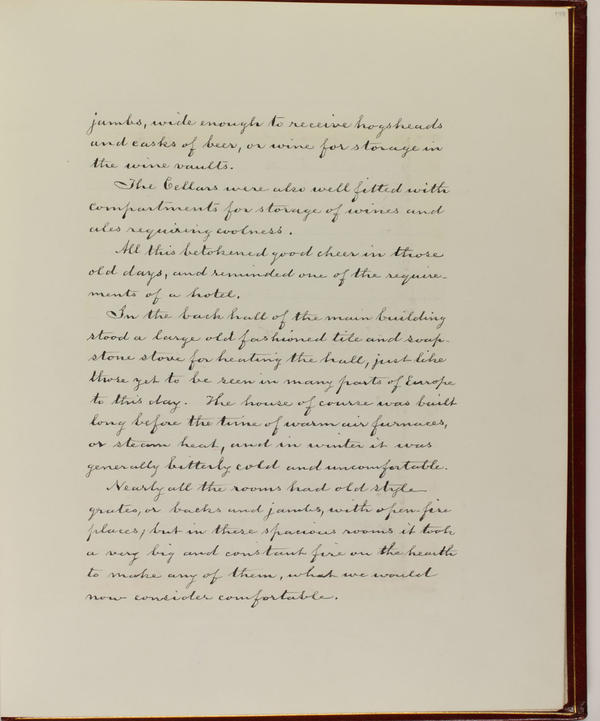 jambs, wide enough to receive hogsheads
and casks of beer, or wine for storage in
the wine vaults.
The Cellars were also well fitted with
compartments for storage of wines and
ales requiring coolness.
All this betokened good cheer in those
old days, and reminded one of the require-
ments of a hotel.
In the back hall of the main building
stood a large old fashioned tile and soap-
stone stove for heating the hall, just like
those yet to be seen in many parts of Europe
to this day. The house of course was built
long before the time of warm air furnaces,
or steam heat, and in winter it was
generally bitterly cold and uncomfortable.
Nearly all the rooms had old style
grates, or backs and jambs, with open fire
places; but in these spacious rooms it took
a very big and constant fire on the hearth
to make any of them, what we would
now consider comfortable.